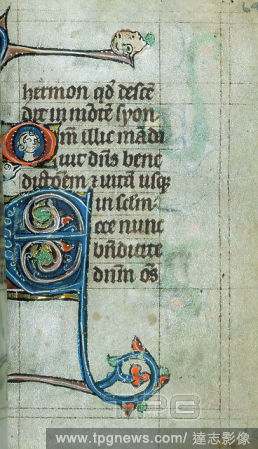 hermon qd desce
dit in mōte syon
Qm illic māda
uit dn̄s bene
dictōem ⁊ uitā usq;
in sclm.
Ecce nunc
bn̄dicite
dn̄m os̄
TPG
www.tpgnews.com/ 達志影像